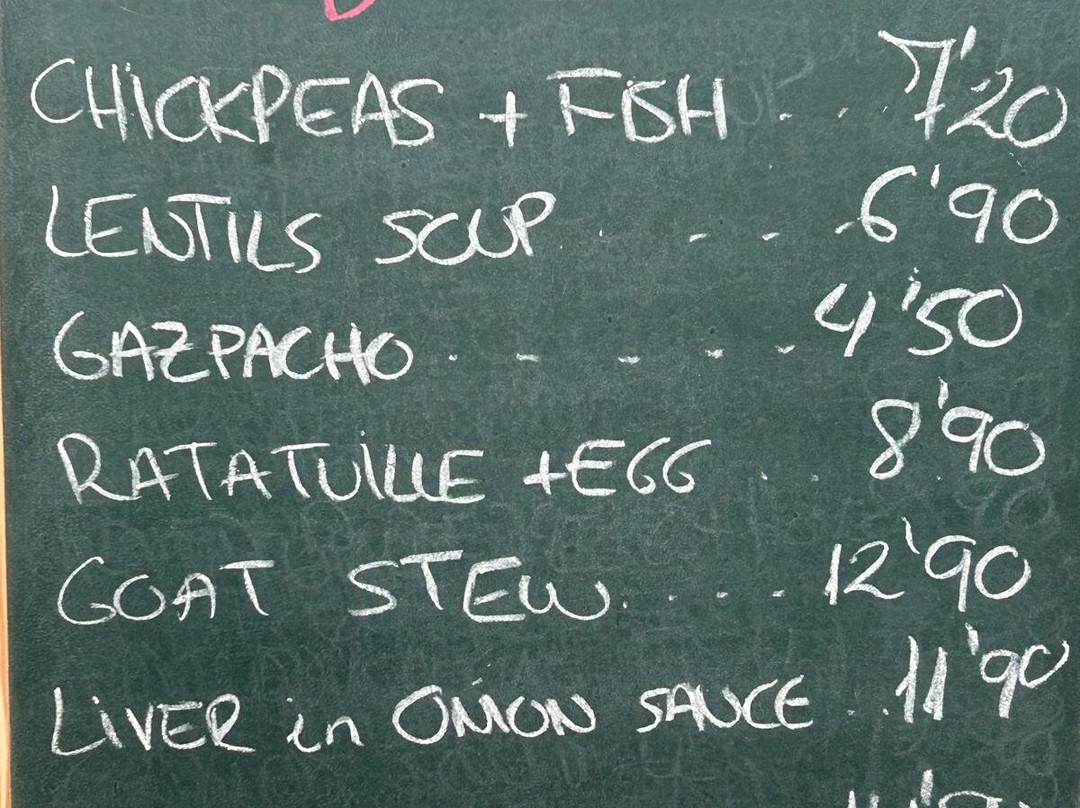 CHICKPEAS + FISH . . . 7'20
LENTILS SOUP . - - - 6'90
GAZPACHO . - - - - 4'50
RATATUILLE + EGG . . . 8'90
GOAT STEW . . . . 12'90
LIVER in ONION SAUCE . . 11'90